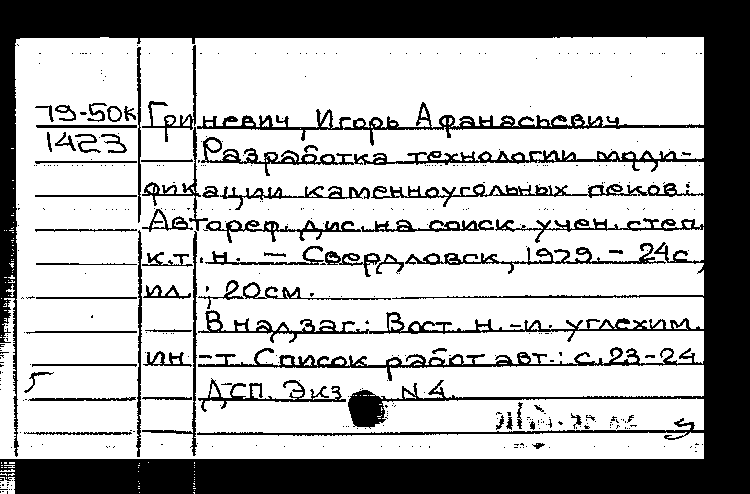 79-50к Гриневич, Игорь Афанасьевич
1423 Разработка технологии моди-
фикации каменноугольных пеков:
Автореф. дис. на соиск. учен. степ.
к.т.н. — Свердловск, 1979. - 24с,
ил.; 20см.
В надзаг.: Вост. н.-и. углехим.
ин-т. Список работ авт.: с.23-24
ДСП. Экз. N 4.